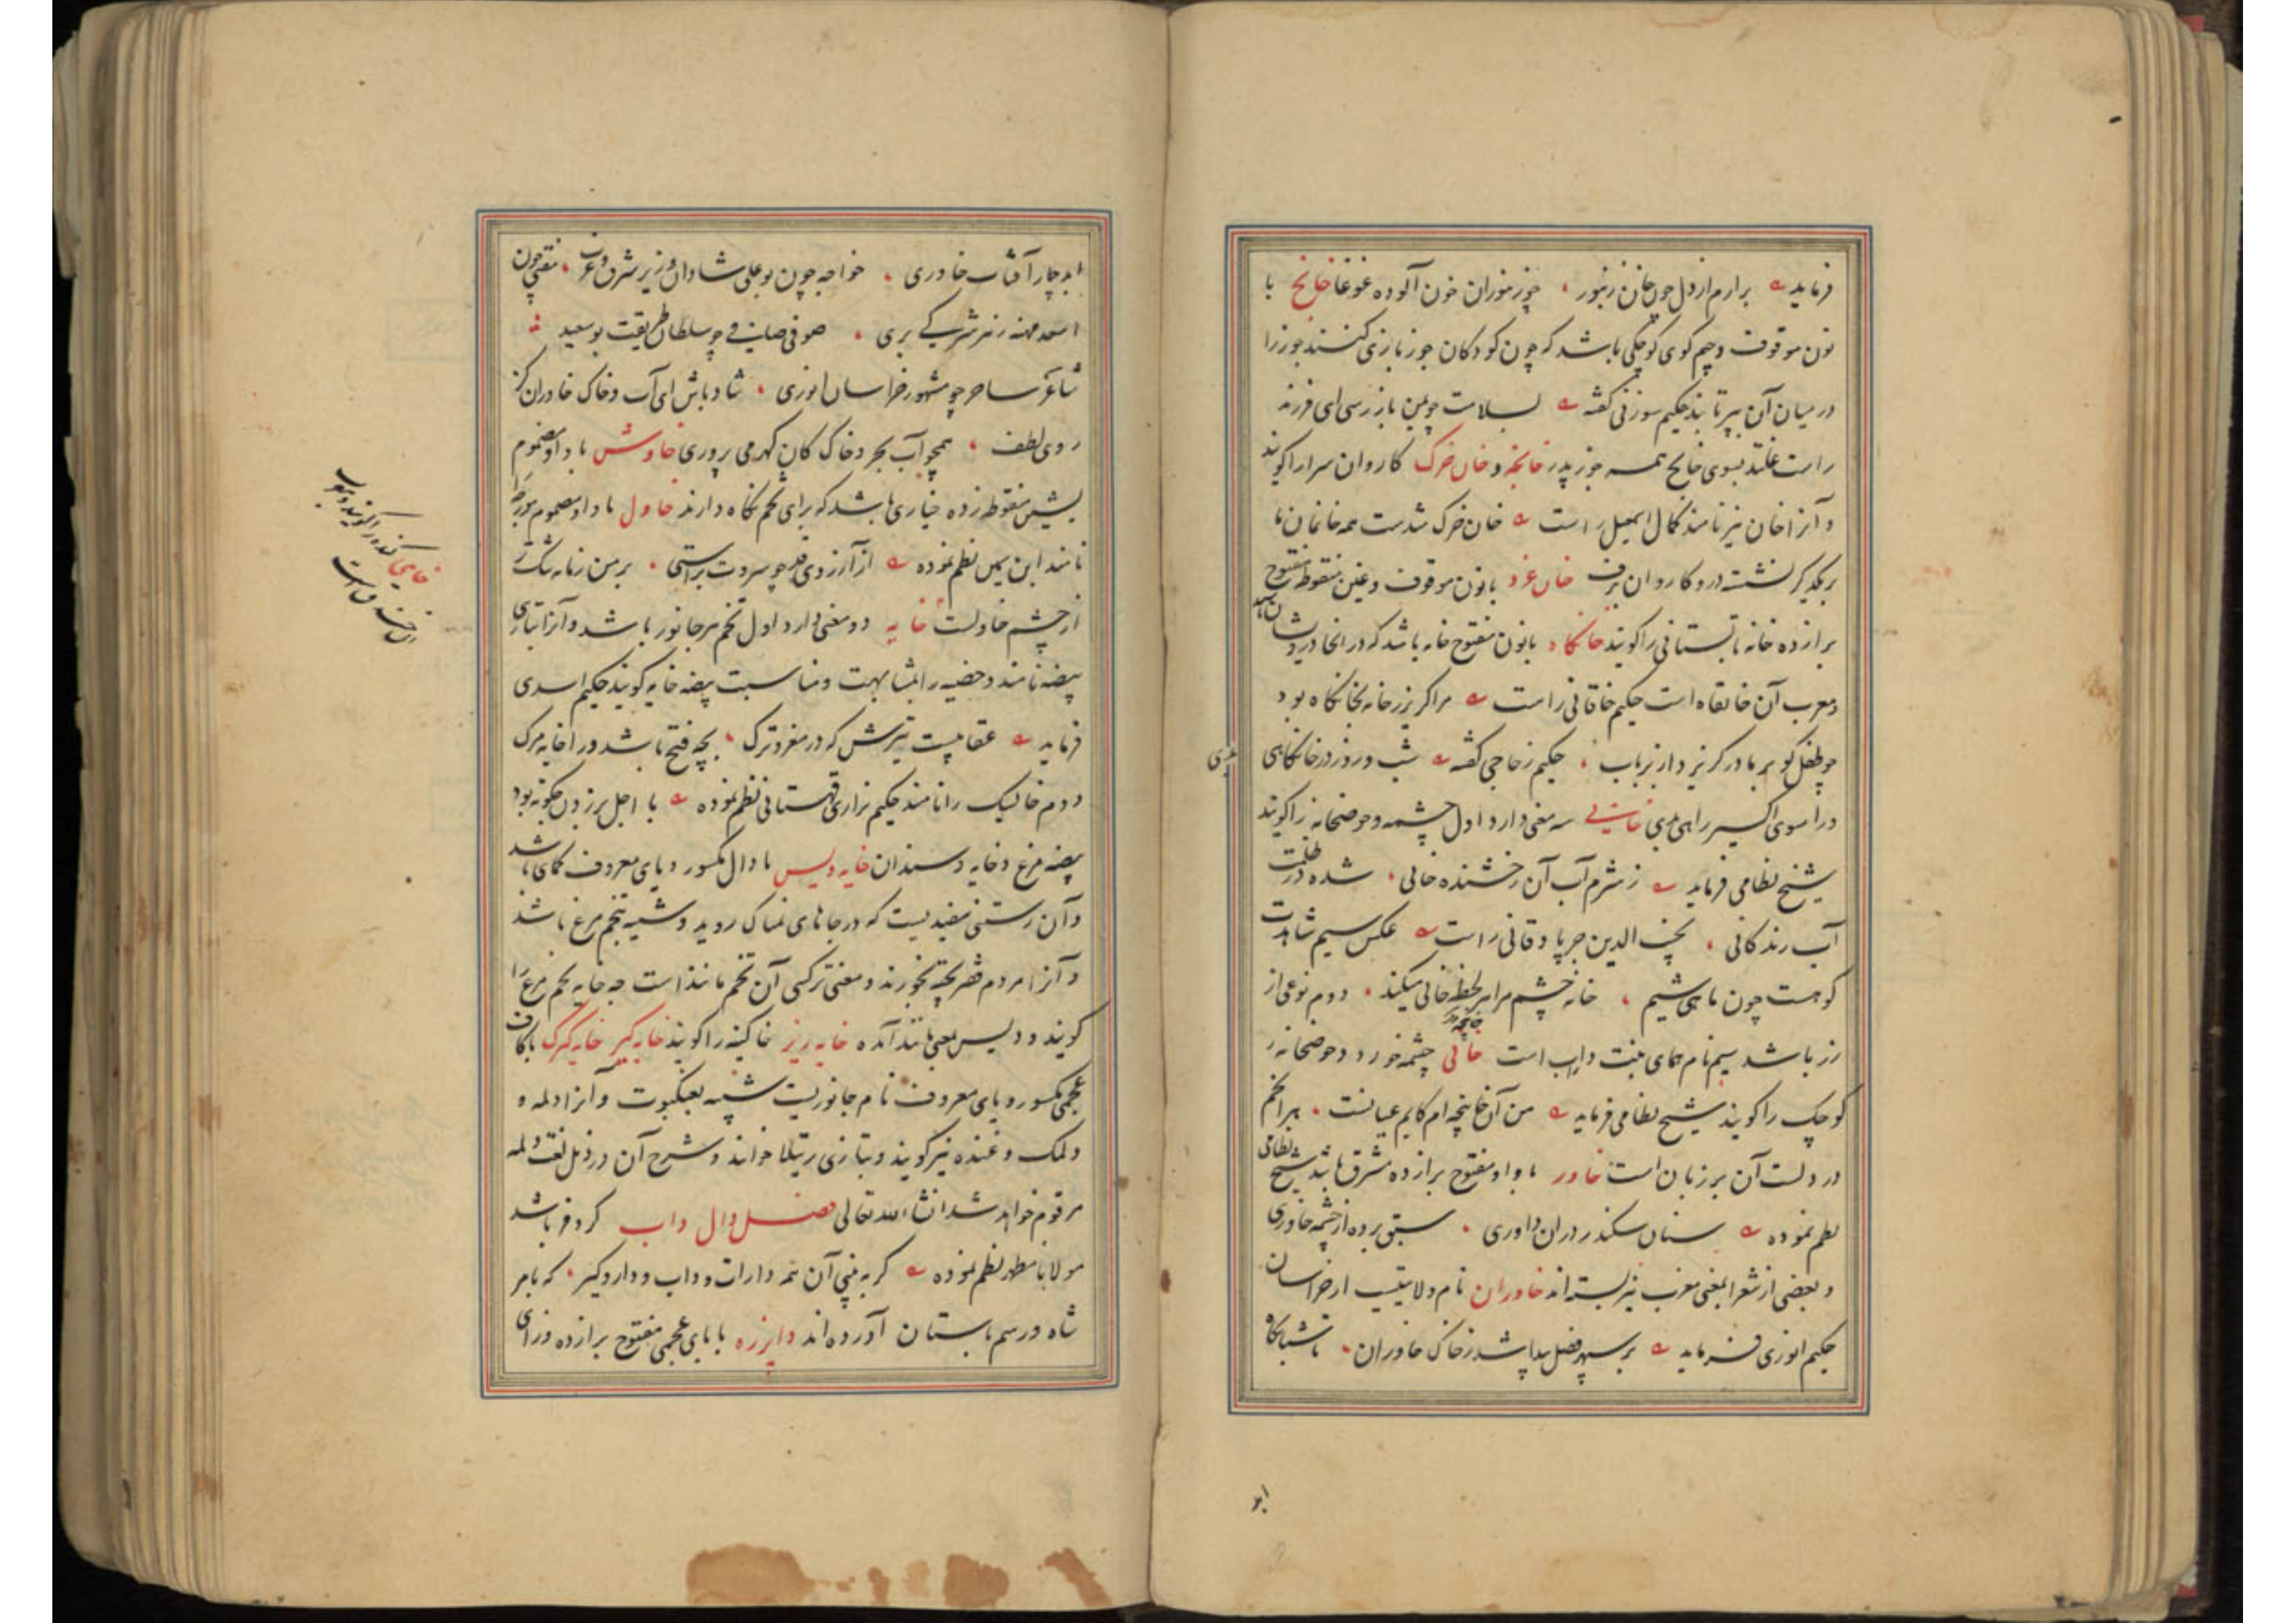 فرماید برارم از دل چون خان زنبور خور زنبوران خون آلوده غوغا خانچ با
نون موقوف و جیم کوی کوچکی باشد که چون کودکان جوز بازی کنند جوز را
در میان آن بپرتابند حکیم سوزنی گفته بسلامت چو بمن باز رسی ای فرزند
راست غلتد بسوی خانچ همه جوز پدر خانچه و خان خرک کاروان سرا را گویند
و آنرا خان نیز نامند کمال اسمعیل راست خان خرک شدست همه خانمان ما
بر یکدیگر نشست درو کاروان برف خان غرد با نون موقوف و غین منقوطه مفتوح
برا زده خانه تابستانی را گویند خانکاه با نون مفتوح خانه باشد که در انجا درویشان باشند
و معرب آن خانقاه است حکیم خاقانی راست مرا گریز ز خانه بخانکاه بود
چو طفل کو بر مادر گریزد از بر باب حکیم زجاجی گفته شب و روز در خانکاهی
درا سوی اکسیر راهی بدی خانی سه معنی دارد اول چشمه و حوضخانه را گویند
شیخ نظامی فرماید ز شرم آب آن رخشنده خانی شده در ظلمت
آب زندگانی نجیب الدین جرپادقانی راست عکس سیم شاهدت
کوهست چون ماهی شیم خانه چشم مرا هر لحظه خانی میکند دوم نوعی از
زر باشد سیم نام کمای منبت داب است خانی چشمه خورد و حوضخانه
خانچه
کوچک را گویند شیخ نظامی فرماید من آن خانچه ام کابم عیانست هر انچم
در دلست آن بر زبان است خاور با واو مفتوح برا زده مشرق باشد شیخ نظامی
نظم نموده سنان سکندر دران داوری سبق برده از چشمه خاوری
و بعضی از شعرا بمعنی مغرب نیز بسته اند خاوران نام ولایتیست از خراسان
حکیم انوری فرماید بر سپهر فضل پیدا شد ز خاک خاوران تا شبانکاه
ابد چار آفتاب خاوری خواجه چون بوعلی شادان وزیر شرق و غرب مفتی چون
اسعد مهنه ز هر شرکی بری صوفی صافی چو سلطان طریقت بوسعید
شاعر ساحر چو مشهور خراسان انوری شاد باش ای آب و خاک خاوران کز
روی لطف همچو آب بحر و خاک کان گهر می پروری خاوش با واو مضموم
بشین منقوطه زده خیاری باشد که برای تخم نگاه دارند خاول با واو مضموم مورچه را
نامند ابن یمین نظم نموده از آرزوی قد چو سروت براستی بر من زمانه تنگ تر
از چشم خاولست خایه دو معنی دارد اول تخم هر جانور باشد و آنرا بتازی
بیضه نامند و خصیه را بمشابهت و مناسبت بیضه خایه گویند حکیم اسدی
فرماید عقابیست تیرش که در مغز و ترک بچه فتح باشد ورا خایه مرک
دوم خایسک را نامند حکیم نزاری قهستانی نظم نموده با اجل برزدن چگونه بود
بیضه مرغ و خایه و سندان خایه دیس با دال مکسور و یای معروف کمای باشد
و آن رستنی سفیدیست که در جاهای نمناک روید و شبیه بتخم مرغ باشد
و آنرا مردم فقیر پخته بخورند و معنی ترکی آن تخم مانند است چه خایه تخم مرغ را
گویند و دیس بمعنی مانند آمده خایه ریز خاکینه را گویند خایه گیر خایه گیرک با کاف
عجمی مکسور و یای معروف نام جانوریست شبیه بعنکبوت و آنرا دلمه و
دلمک و غنده نیز گویند و بتازی رتیلا خوانند و شرح آن در ذیل لغت دلمه
مرقوم خواهد شد انشاء الله تعالی فصل دال داب کر و فر باشد
مولانا مظهر نظم نموده گر به بینی آن همه دارات و داب و دار و گیر که بامر
شاه و رسم باستان آورده اند داپرزه با بای عجمی مفتوح برا زده و زای
ابد